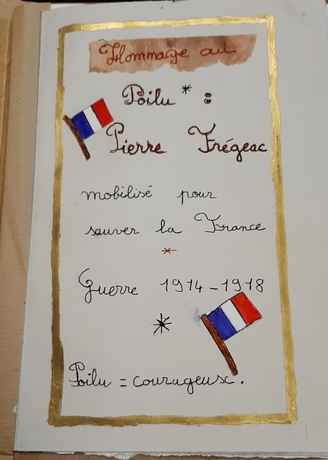 Hommage au
Poilu * :
Pierre Frégeac
mobilisé pour
sauver la France
*
Guerre 1914-1918
*
Poilu = courageux.